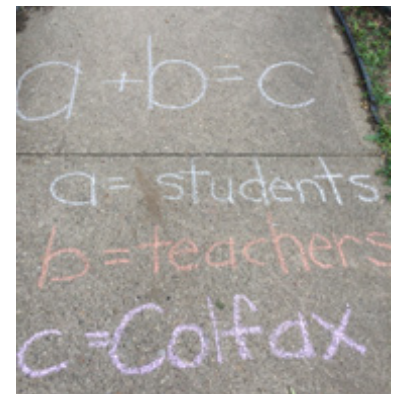 a+b=c
a= students
b=teachers
c=Colfax